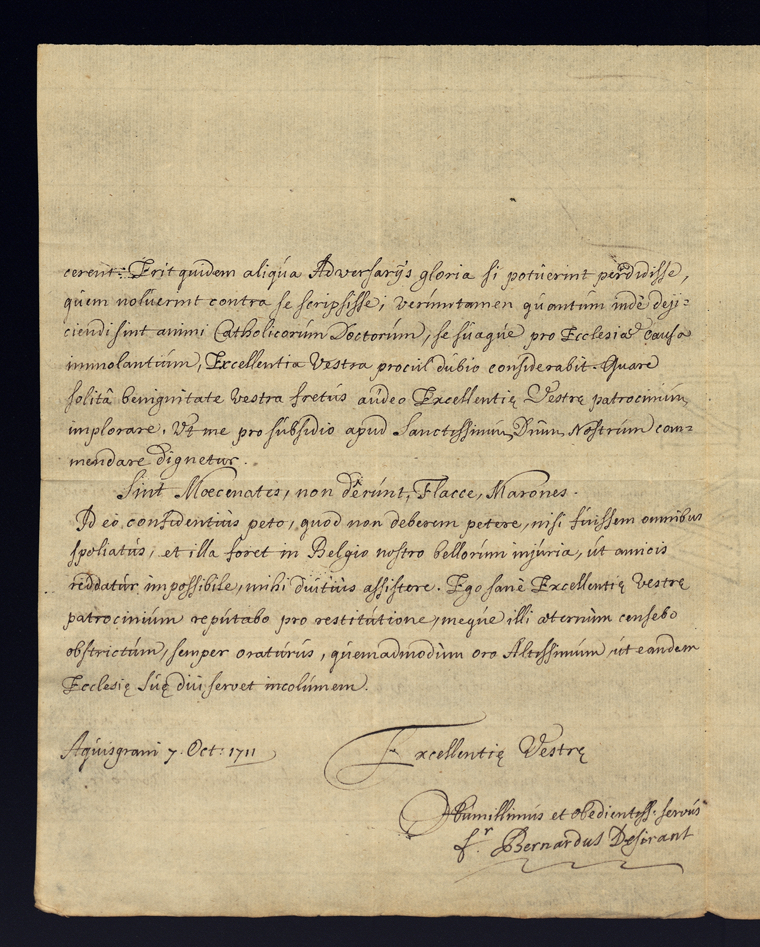 cerent: Erit quidem aliqua Adversarijs gloria si potuerint perdidisse,
quem noluerint contra se scripsisse; verumtamen quantum inde deji-
ciendi sint animi Catholicorum Doctorum, se suaque pro Ecclesiæ causa
immolantium, Excellentia Vestra procul dubio considerabit. Quare
solitâ benignitate vestra fretus audeo Excellentię Vestrę patrocinium
implorare. Ut me pro subsidio apud Sanctissimum Dnum Nostrum com-
mendare dignetur.
Sint Mœcenates, non dèrunt, Flacce, Marones.
Id eò confidentiùs peto, quod non deberem petere, nisi fuissem omnibus
spoliatus; et illa foret in Belgio nostro bellorum injuria, ut amicis
reddatur impossibile, mihi diutiùs assistere. Ego sanè Excellentię vestrę
patrocinium reputabo pro restitutione, meque illi æternùm censebo
obstrictum, semper oraturus, quemadmodùm oro Altissimum, ut eandem
Ecclesię Suę diù servet incolumem.
Aquisgrani 7. Oct: 1711
Excellentię Vestrę
Humillimus et obedientiss. servus
f.r Bernardus Desirant